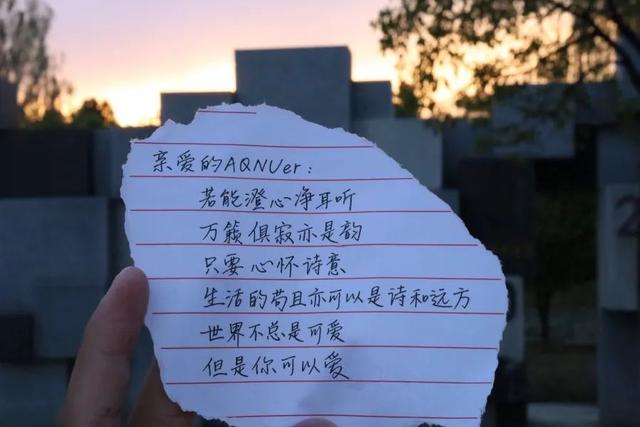 亲爱的AQNUer:
若能澄心净耳听
万籁俱寂亦是韵
只要心怀诗意
生活的苟且亦可以是诗和远方
世界不总是可爱
但是你可以爱